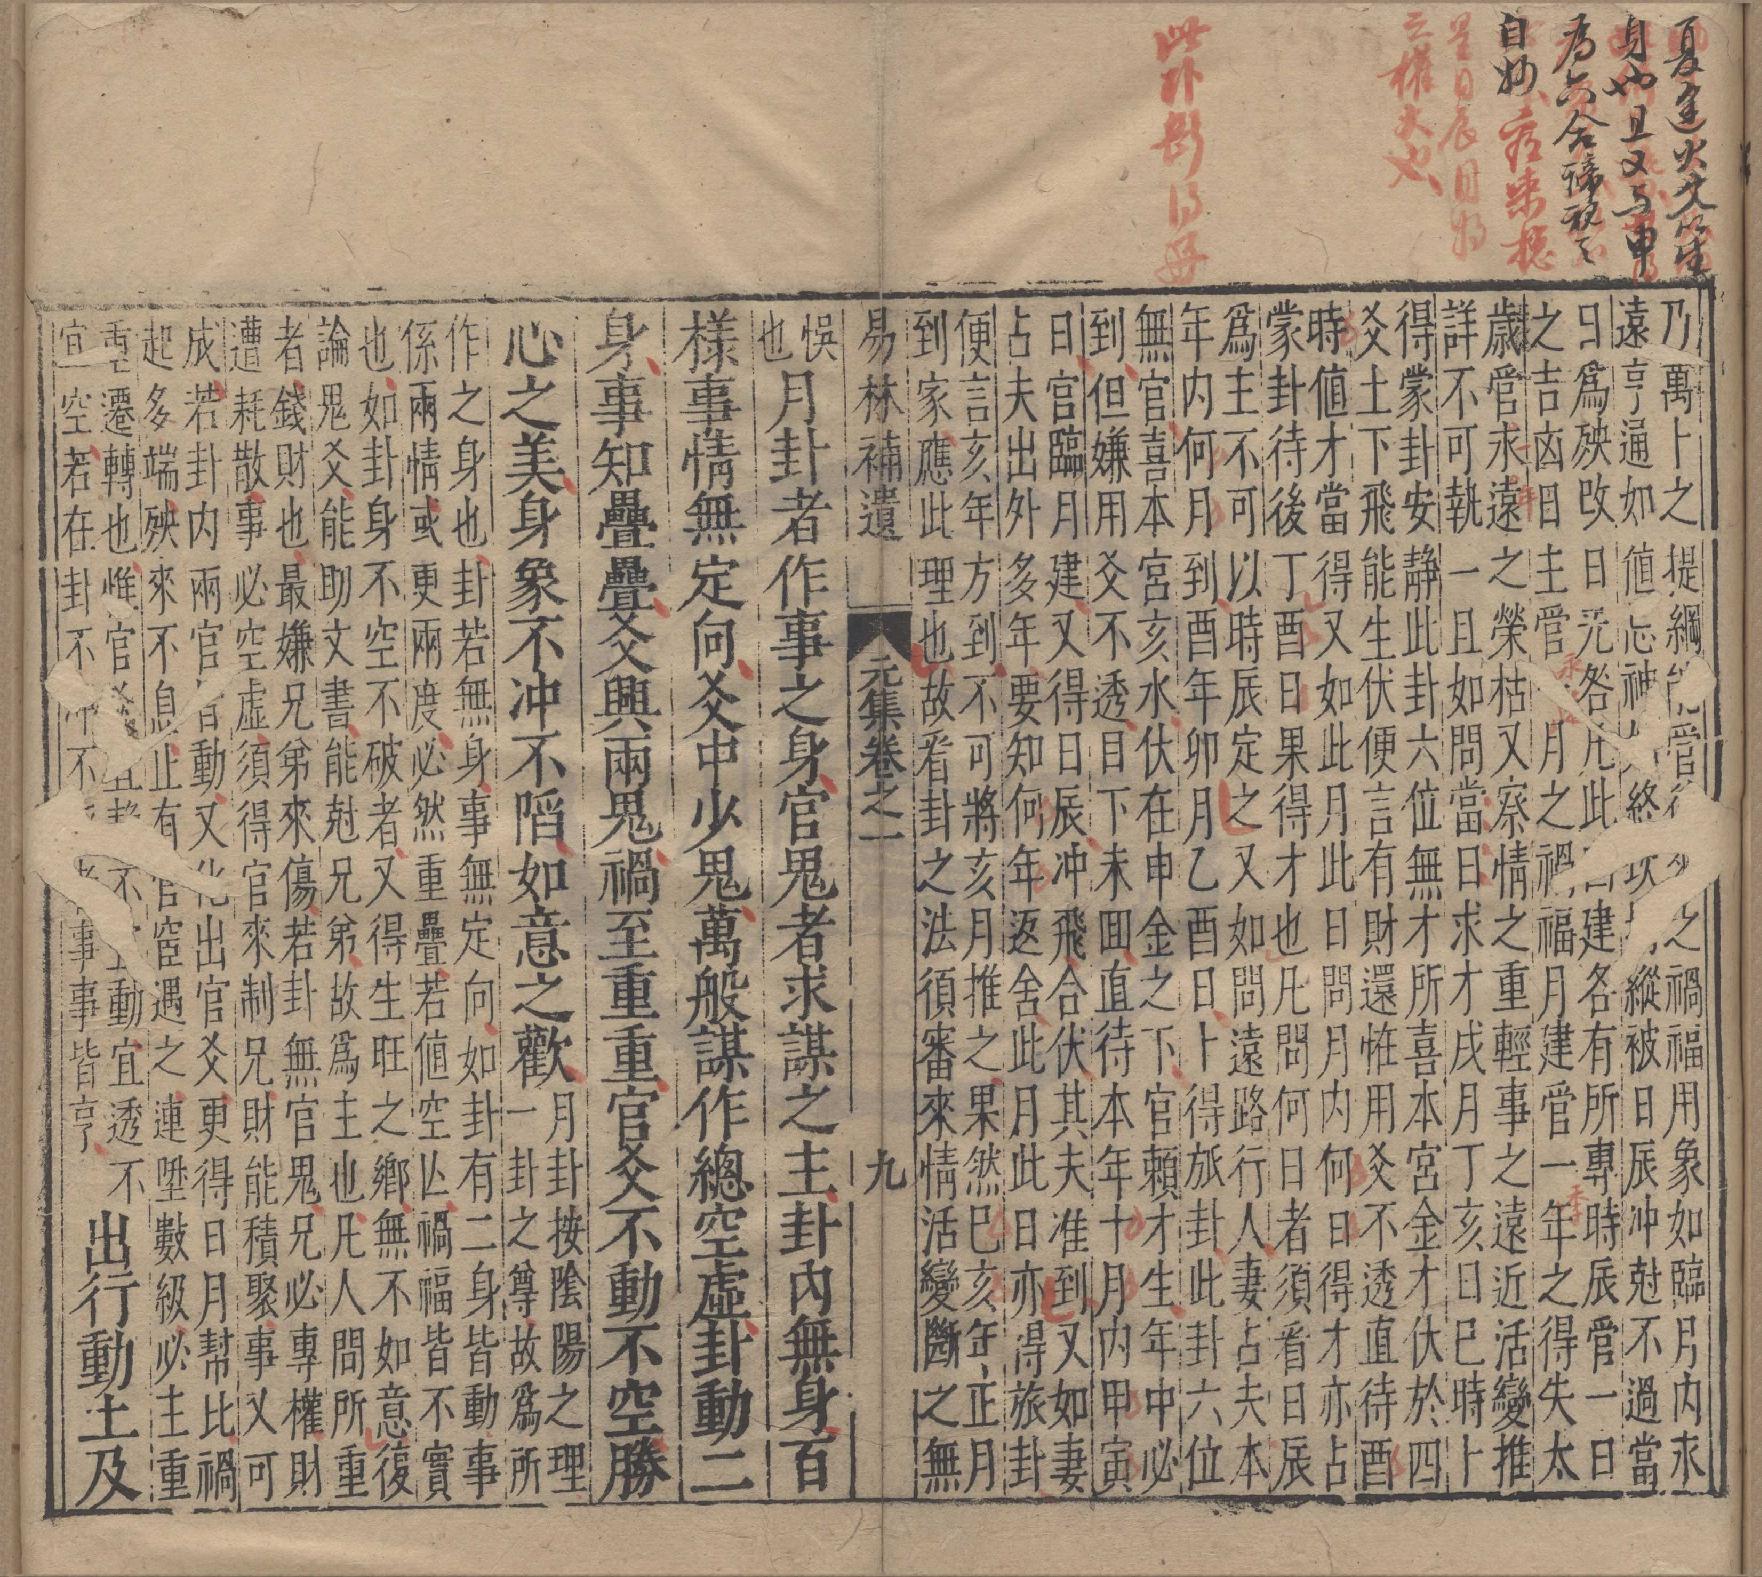 夏逢火又𠇍生
身也且又与申
為六合
自妙
三權大也
此卦斷得好
乃萬卜之提綱管之禍福用象如臨月内求
遠亨通如值忌神終縱被日辰冲尅不過當
日為殃改日咎凡此建各有所專時辰管一日
之吉凶日主管月之禍福月建管一年之得失太
歲管永遠之榮枯又察情之重輕事之遠近活變推
詳不可執一且如問當日求才戌月丁亥日巳時卜
得蒙卦安靜此卦六位無才所喜本宮金才伏於四
爻土下飛能生伏便言有財還惟用爻不透直待酉
時值才當得又如此月此日問月内何日得才亦占
蒙卦待後丁酉日果得才也凡問何日者須看日辰
為主不可以時辰定之又如問遠路行人妻占夫本
年内何月到酉年卯月乙酉日卜得旅卦此卦六位
無官喜本宮亥水伏在申金之下官賴才生年中必
到但嫌用爻不透目下未囬直待本年十月内甲寅
日官臨月建又得日辰冲飛合伏其夫准到又如妻
占夫出外多年要知何年返舍此月此日亦得旅卦
便言亥年方到不可將亥月推之果然巳亥年正月
到家應此理也故看卦之法須審來情活變斷之無
易林補遺 元集卷之一 九
悞也
月卦者作事之身官鬼者求謀之主卦內無身百
樣事情無定向爻中少鬼萬般謀作總空虛卦動二
身事知疊疊爻興兩鬼禍至重重官爻不動不空勝
心之美身象不冲不陷如意之歡
月卦按陰陽之理
一卦之尊故為所
作之身也卦若無身事無定向如卦有二身皆動事
係兩情或更兩度必然重疊若值空亾禍福皆不實
也如卦身不空不破者又得生旺之鄉無不如意復
論鬼爻能助文書能尅兄弟故為主也凡人問所重
者錢財也最嫌兄弟來傷若卦無官鬼兄必專權財
遭耗散事必空虛須得官來制兄財能積聚事又可
成若卦内兩官皆動又化出官爻更得日月幫比禍
起多端殃來不息止有官臨遇之連陞數級必主重
重遷轉也惟官不動宜透不
宜空若在卦不事事皆亨
出行動土及